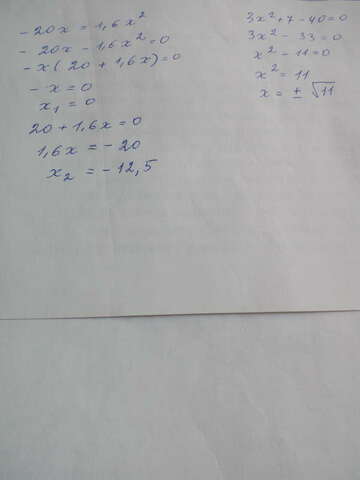 - 20x = 1,6x²
- 20x - 1,6x² = 0
- x ( 20 + 1,6x) = 0
- x = 0
x₁ = 0
20 + 1,6x = 0
1,6x = - 20
x₂ = - 12,5
3x² + 7 - 40 = 0
3x² - 33 = 0
x² - 11 = 0
x² = 11
x = ± √11